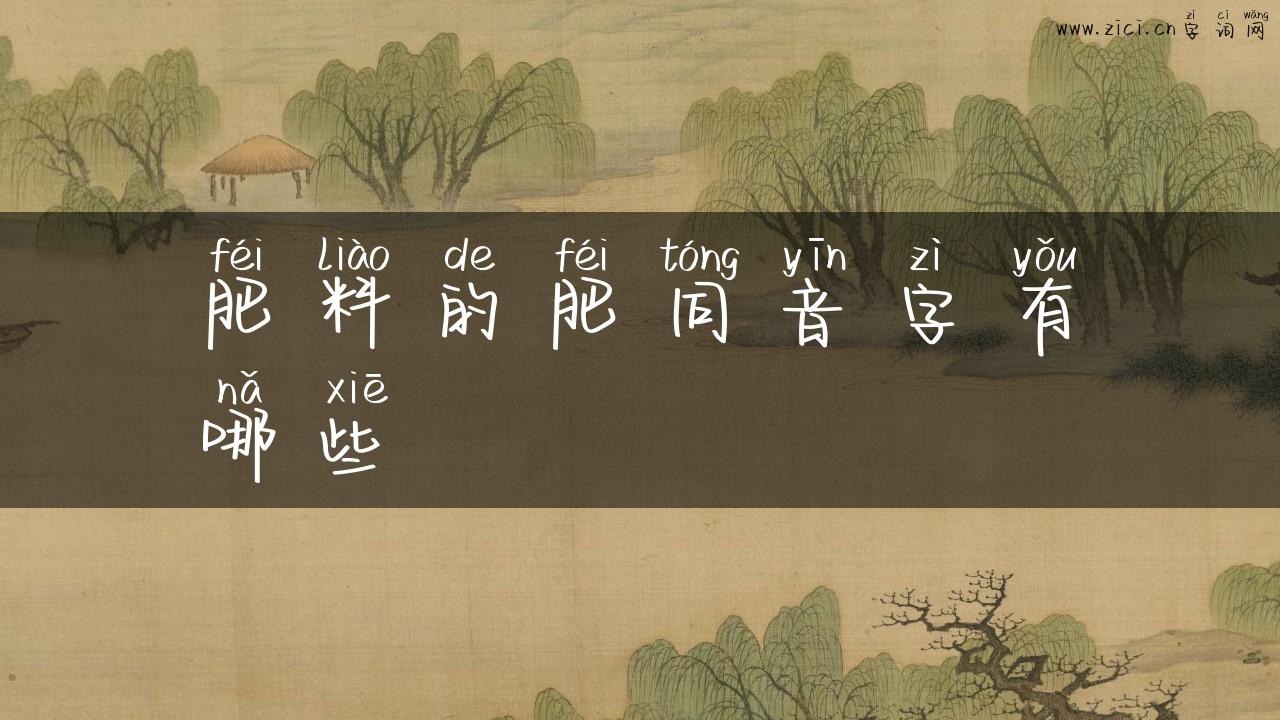 zì cí wǎng
www.zici.cn 字词网
féi liào de féi tóng yīn zì yǒu
肥料的肥同音字有
nǎ xiē
哪些